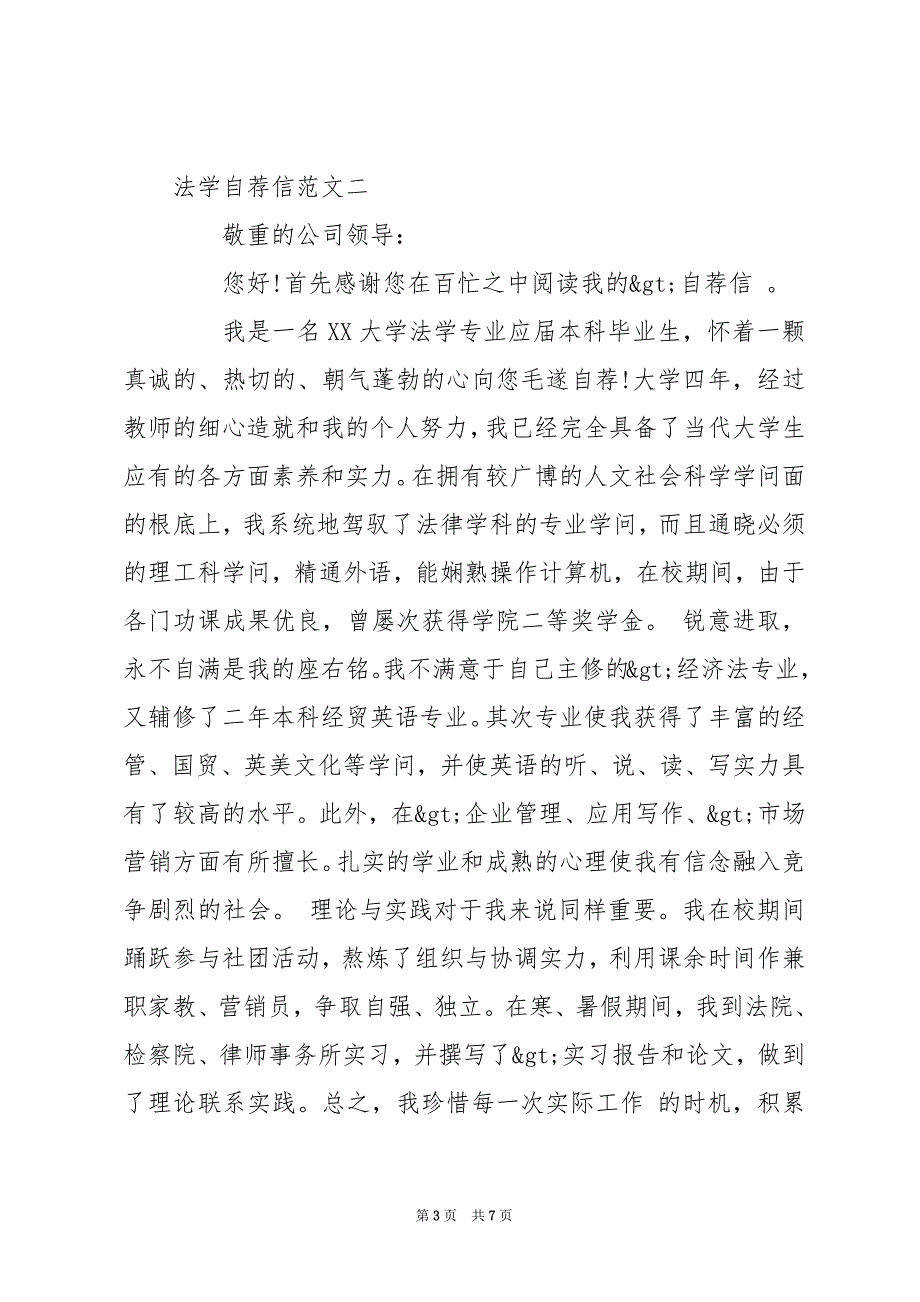 法学自荐信范文二
敬重的公司领导：
您好!首先感谢您在百忙之中阅读我的&gt;自荐信 。
我是一名 XX 大学法学专业应届本科毕业生，怀着一颗
真诚的、热切的、朝气蓬勃的心向您毛遂自荐!大学四年，经过
教师的细心造就和我的个人努力，我已经完全具备了当代大学生
应有的各方面素养和实力。在拥有较广博的人文社会科学学问面
的根底上，我系统地驾驭了法律学科的专业学问，而且通晓必须
的理工科学问，精通外语，能娴熟操作计算机，在校期间，由于
各门功课成果优良，曾屡次获得学院二等奖学金。 锐意进取，
永不自满是我的座右铭。我不满意于自己主修的&gt;经济法专业，
又辅修了二年本科经贸英语专业。其次专业使我获得了丰富的经
管、国贸、英美文化等学问，并使英语的听、说、读、写实力具
有了较高的水平。此外，在&gt;企业管理、应用写作、&gt;市场
营销方面有所擅长。扎实的学业和成熟的心理使我有信念融入竞
争剧烈的社会。 理论与实践对于我来说同样重要。我在校期间
踊跃参与社团活动，熬炼了组织与协调实力，利用课余时间作兼
职家教、营销员，争取自强、独立。在寒、暑假期间，我到法院、
检察院、律师事务所实习，并撰写了&gt;实习报告和论文，做到
了理论联系实践。总之，我珍惜每一次实际工作 的时机，积累
第 3 页 共 7 页